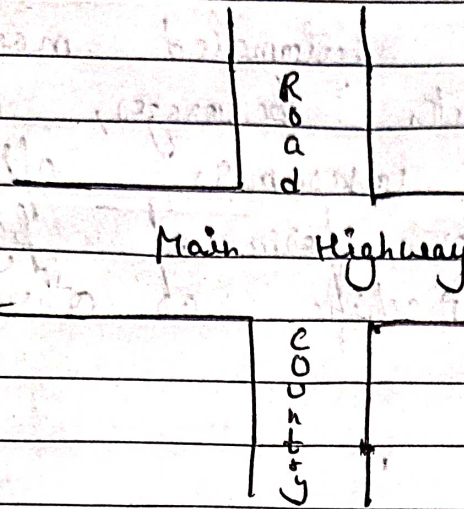 Road
Main Highway
Country